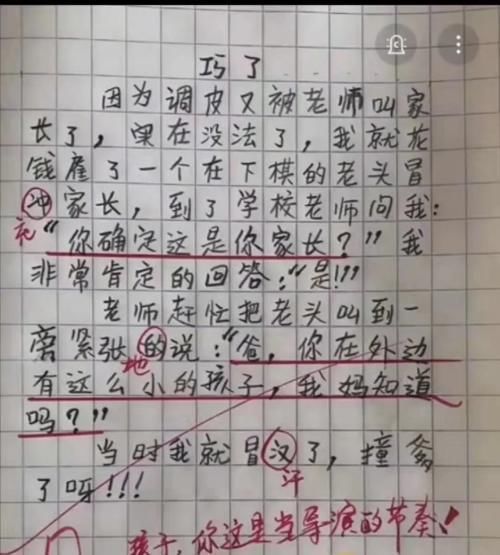 巧了
因为调皮又被老师叫家
长了，实在没法了，我就花
钱雇了一个在下棋的老头冒
冲家长，到了学校老师问我：
充
“你确定这是你家长？”我
非常肯定的回答：“是!!!”
老师赶忙把老头叫到一
旁紧张的说：“爸，你在外边
地
有这么小的孩子，我妈知道
吗？”
当时我就冒汉了，撞爹
汗
了呀!!!
孩子，你这是当导演的节奏!